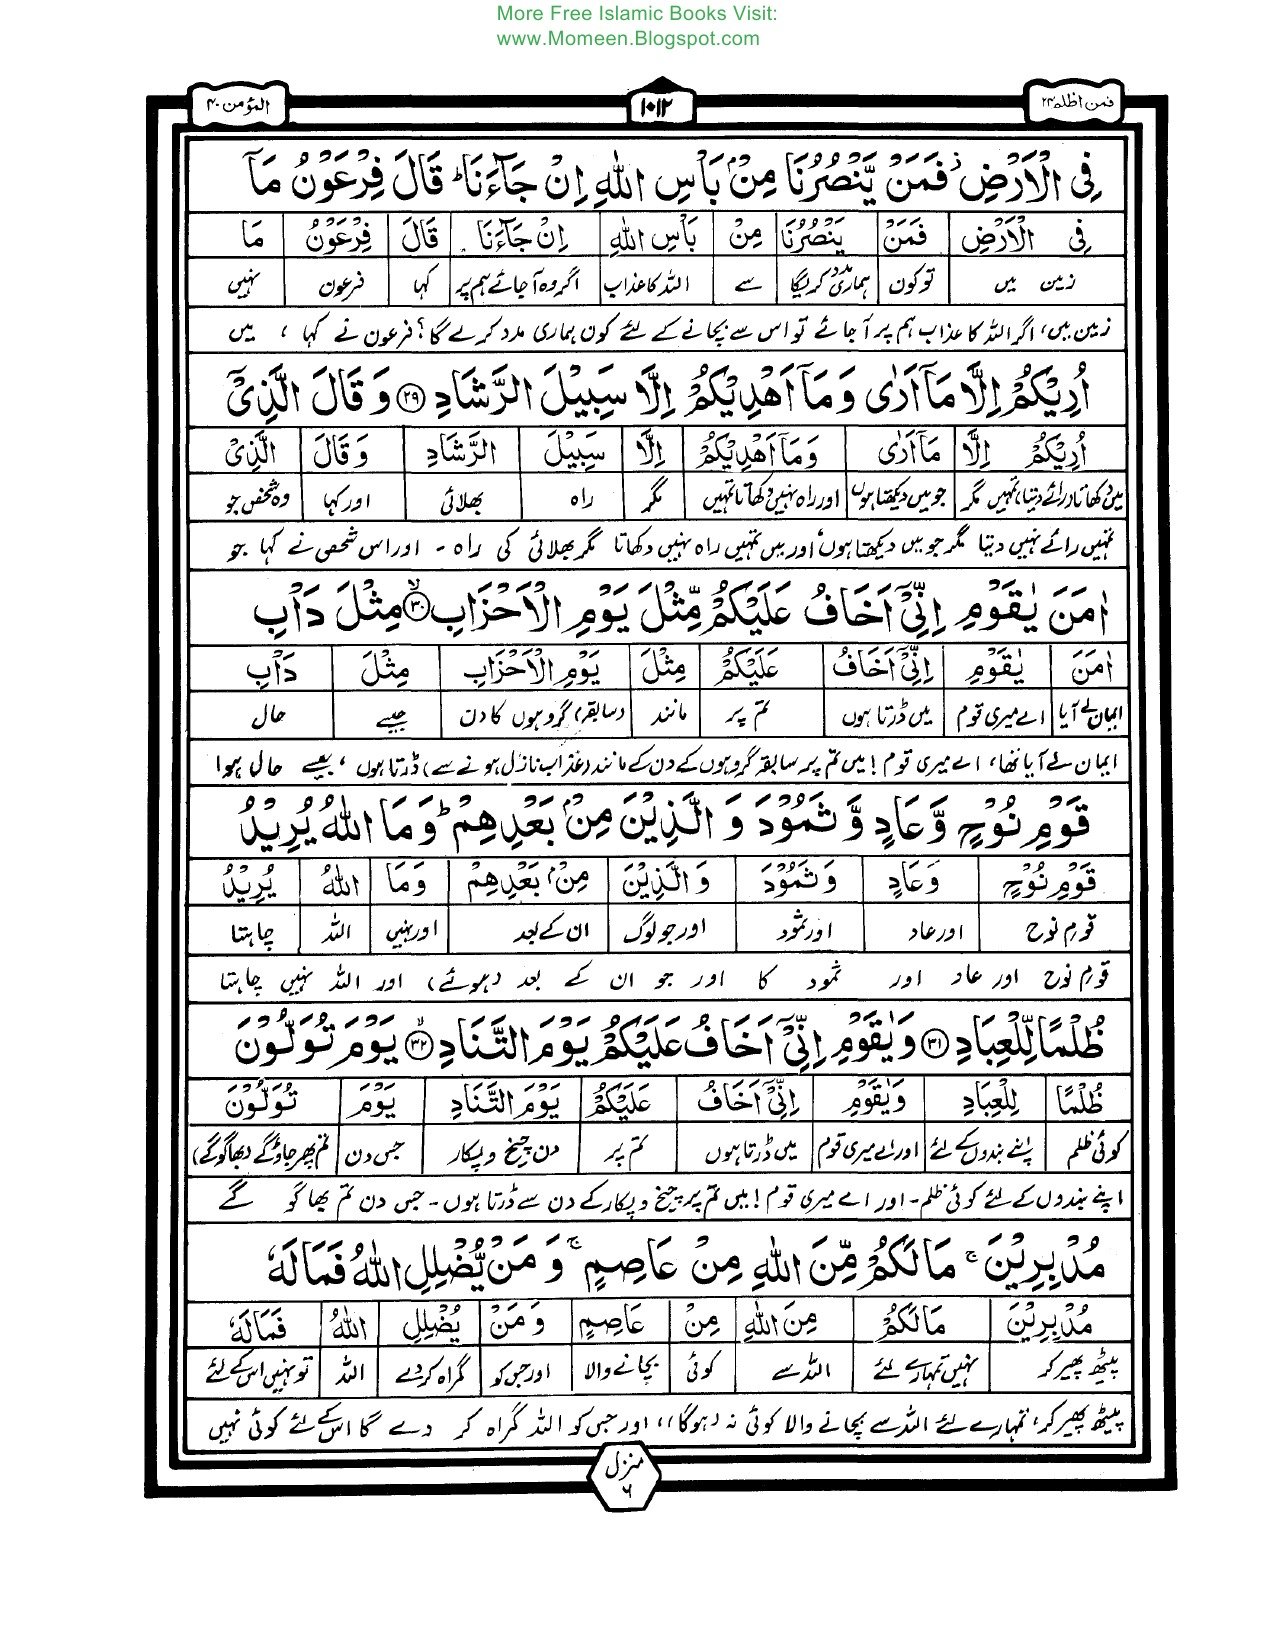 More Free Islamic Books Visit:
www.Momeen.Blogspot.com
فمن اظلم ۲۴ ۱۰۱۲ المؤمن ۴۰
فِى الْاَرْضِ ۡ فَمَنْ يَّنْصُرُنَا مِنْۢ بَاْسِ اللّٰهِ اِنْ جَآءَنَا ؕ قَالَ فِرْعَوْنُ مَآ
فِى الْاَرْضِ فَمَنْ يَنْصُرُنَا مِنْ بَاْسِ اللّٰهِ اِنْ جَآءَنَا قَالَ فِرْعَوْنُ مَا
زمین میں تو کون ہماری مدد کریگا سے اللہ کا عذاب اگر وہ آجائے ہم پر کہا فرعون نہیں
زمین میں، اگر اللہ کا عذاب ہم پر آجائے تو اس سے بچانے کے لئے کون ہماری مدد کرے گا؟ فرعون نے کہا ، میں
اُرِيْكُمْ اِلَّا مَآ اَرٰى وَمَآ اَهْدِيْكُمْ اِلَّا سَبِيْلَ الرَّشَادِ ۲۹ وَقَالَ الَّذِىْٓ
اُرِيْكُمْ اِلَّا مَآ اَرٰى وَمَآ اَهْدِيْكُمْ اِلَّا سَبِيْلَ الرَّشَادِ وَقَالَ الَّذِىْٓ
میں دکھاتا (رائے دیتا) تمہیں مگر جو میں دیکھتا ہوں اور راہ نہیں دکھاتا تمہیں مگر راہ بھلائی اور کہا وہ شخص جو
تمہیں رائے نہیں دیتا مگر جو میں دیکھتا ہوں، اور میں تمہیں راہ نہیں دکھاتا مگر بھلائی کی راہ - اور اس شخص نے کہا جو
اٰمَنَ يٰقَوْمِ اِنِّىْٓ اَخَافُ عَلَيْكُمْ مِّثْلَ يَوْمِ الْاَحْزَابِ ۙ۳۰ مِثْلَ دَاْبِ
اٰمَنَ يٰقَوْمِ اِنِّىْٓ اَخَافُ عَلَيْكُمْ مِثْلَ يَوْمِ الْاَحْزَابِ مِثْلَ دَاْبِ
ایمان لے آیا اے میری قوم میں ڈرتا ہوں تم پر مانند (سابقہ) گروہوں کا دن جیسے حال
ایمان لے آیا تھا، اے میری قوم! میں تم پر سابقہ گروہوں کے دن کے مانند (عذاب نازل ہونے سے) ڈرتا ہوں ، جیسے حال ہوا
قَوْمِ نُوْحٍ وَّعَادٍ وَّثَمُوْدَ وَالَّذِيْنَ مِنْۢ بَعْدِهِمْ ؕ وَمَا اللّٰهُ يُرِيْدُ
قَوْمِ نُوْحٍ وَعَادٍ وَثَمُوْدَ وَالَّذِيْنَ مِنْۢ بَعْدِهِمْ وَمَا اللّٰهُ يُرِيْدُ
قوم نوح اور عاد اور ثمود اور جو لوگ ان کے بعد اور نہیں اللہ چاہتا
قوم نوح اور عاد اور ثمود کا اور جو ان کے بعد (ہوئے) اور اللہ نہیں چاہتا
ظُلْمًا لِّلْعِبَادِ ۳۱ وَيٰقَوْمِ اِنِّىْٓ اَخَافُ عَلَيْكُمْ يَوْمَ التَّنَادِ ۙ۳۲ يَوْمَ تُوَلُّوْنَ
ظُلْمًا لِلْعِبَادِ وَيٰقَوْمِ اِنِّىْٓ اَخَافُ عَلَيْكُمْ يَوْمَ التَّنَادِ يَوْمَ تُوَلُّوْنَ
کوئی ظلم اپنے بندوں کے لئے اور اے میری قوم میں ڈرتا ہوں تم پر دن چیخ و پکار جس دن تم پھر جاؤگے (بھاگوگے)
اپنے بندوں کے لئے کوئی ظلم - اور اے میری قوم! میں تم پر چیخ و پکار کے دن سے ڈرتا ہوں - جس دن تم بھاگو گے
مُدْبِرِيْنَ ۚ مَا لَكُمْ مِّنَ اللّٰهِ مِنْ عَاصِمٍ ۚ وَمَنْ يُّضْلِلِ اللّٰهُ فَمَا لَهٗ
مُدْبِرِيْنَ مَا لَكُمْ مِنَ اللّٰهِ مِنْ عَاصِمٍ وَمَنْ يُضْلِلِ اللّٰهُ فَمَا لَهٗ
پیٹھ پھیر کر نہیں تمہارے لئے اللہ سے کوئی بچانے والا اور جس کو گمراہ کردے اللہ تو نہیں اس کے لئے
پیٹھ پھیر کر، تمہارے لئے اللہ سے بچانے والا کوئی نہ (ہوگا)، اور جس کو اللہ گمراہ کر دے گا اس کے لئے کوئی نہیں
منزل
۶